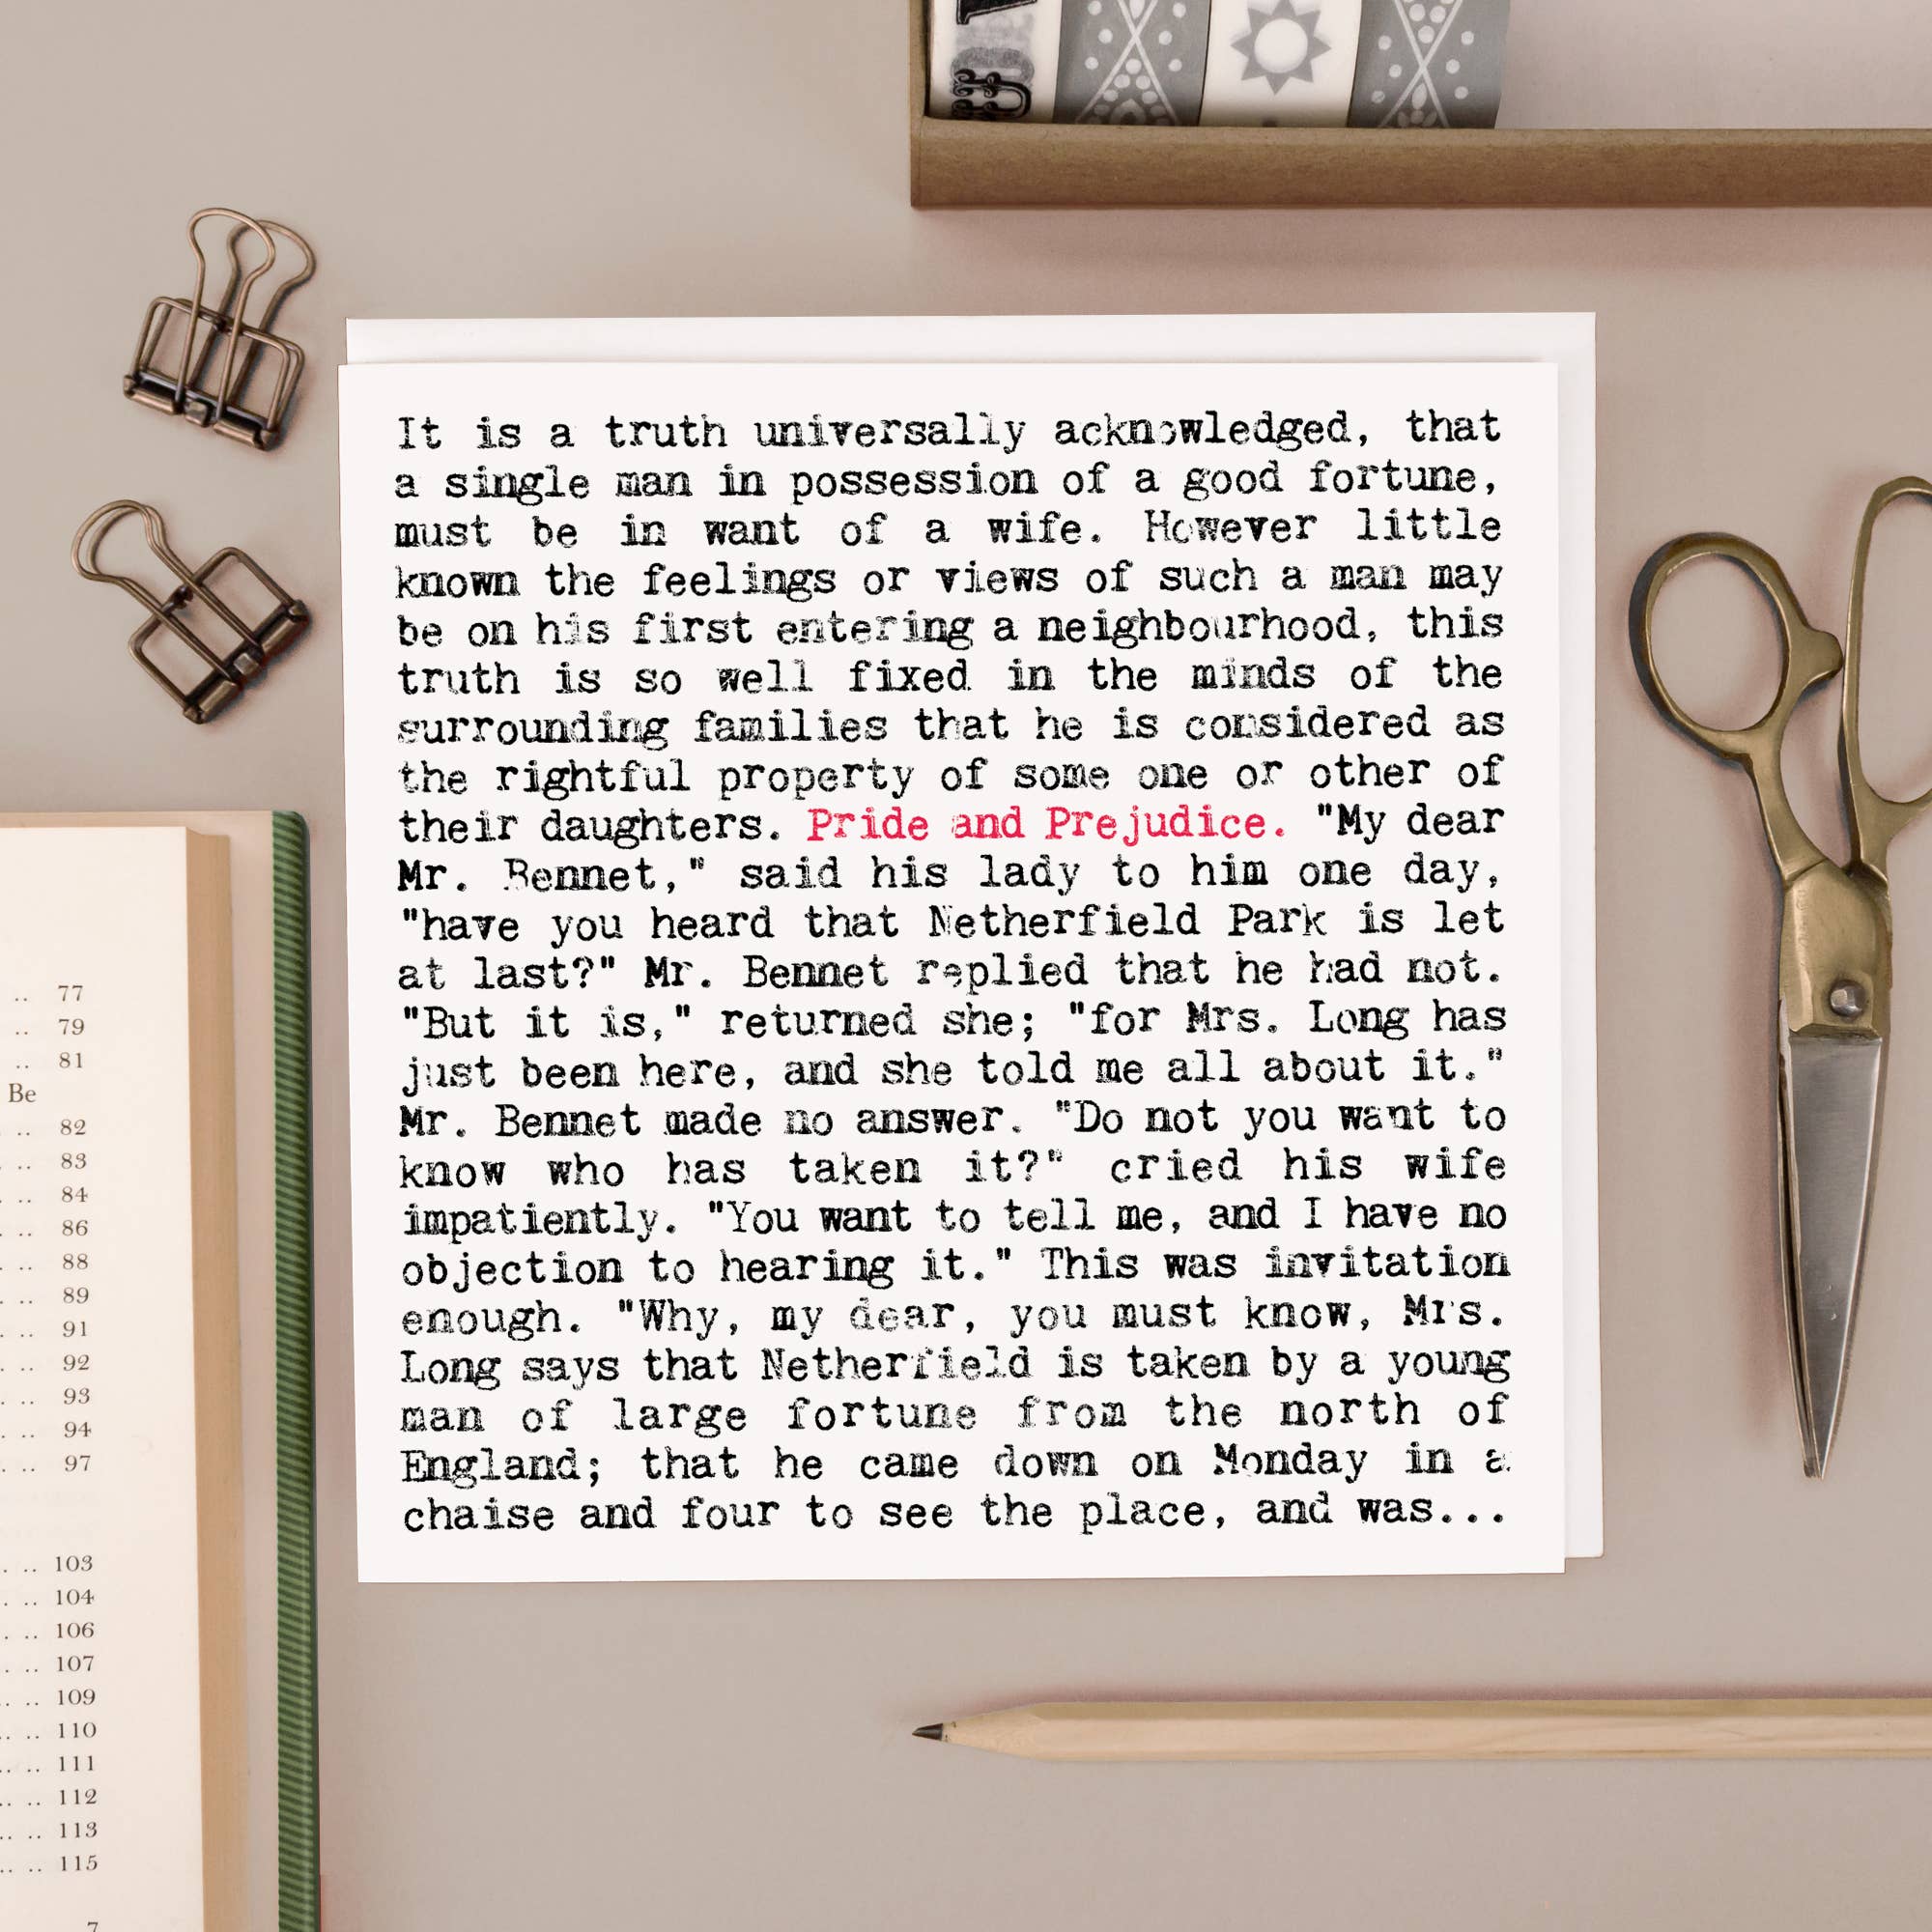 It is a truth universally acknowledged, that
a single man in possession of a good fortune,
must be in want of a wife. However little
known the feelings or views of such a man may
be on his first entering a neighbourhood, this
truth is so well fixed in the minds of the
surrounding families that he is considered as
the rightful property of some one or other of
their daughters. Pride and Prejudice. "My dear
Mr. Bennet," said his lady to him one day,
"have you heard that Netherfield Park is let
at last?" Mr. Bennet replied that he had not.
"But it is," returned she; "for Mrs. Long has
just been here, and she told me all about it."
Mr. Bennet made no answer. "Do not you want to
know who has taken it?" cried his wife
impatiently. "You want to tell me, and I have no
objection to hearing it." This was invitation
enough. "Why, my dear, you must know, Mrs.
Long says that Netherfield is taken by a young
man of large fortune from the north of
England; that he came down on Monday in a
chaise and four to see the place, and was...
.. 77
.. 79
.. 81
Be
. .. 82
. .. 83
. .. 84
. .. 86
. .. 88
. .. 89
. .. 91
. .. 92
. .. 93
. .. 94
. .. 97
. .. 103
. .. 104
. .. 106
. .. 107
.. .. 109
.. .. 110
.. .. 111
.. .. 112
.. .. 113
.. .. 115
7